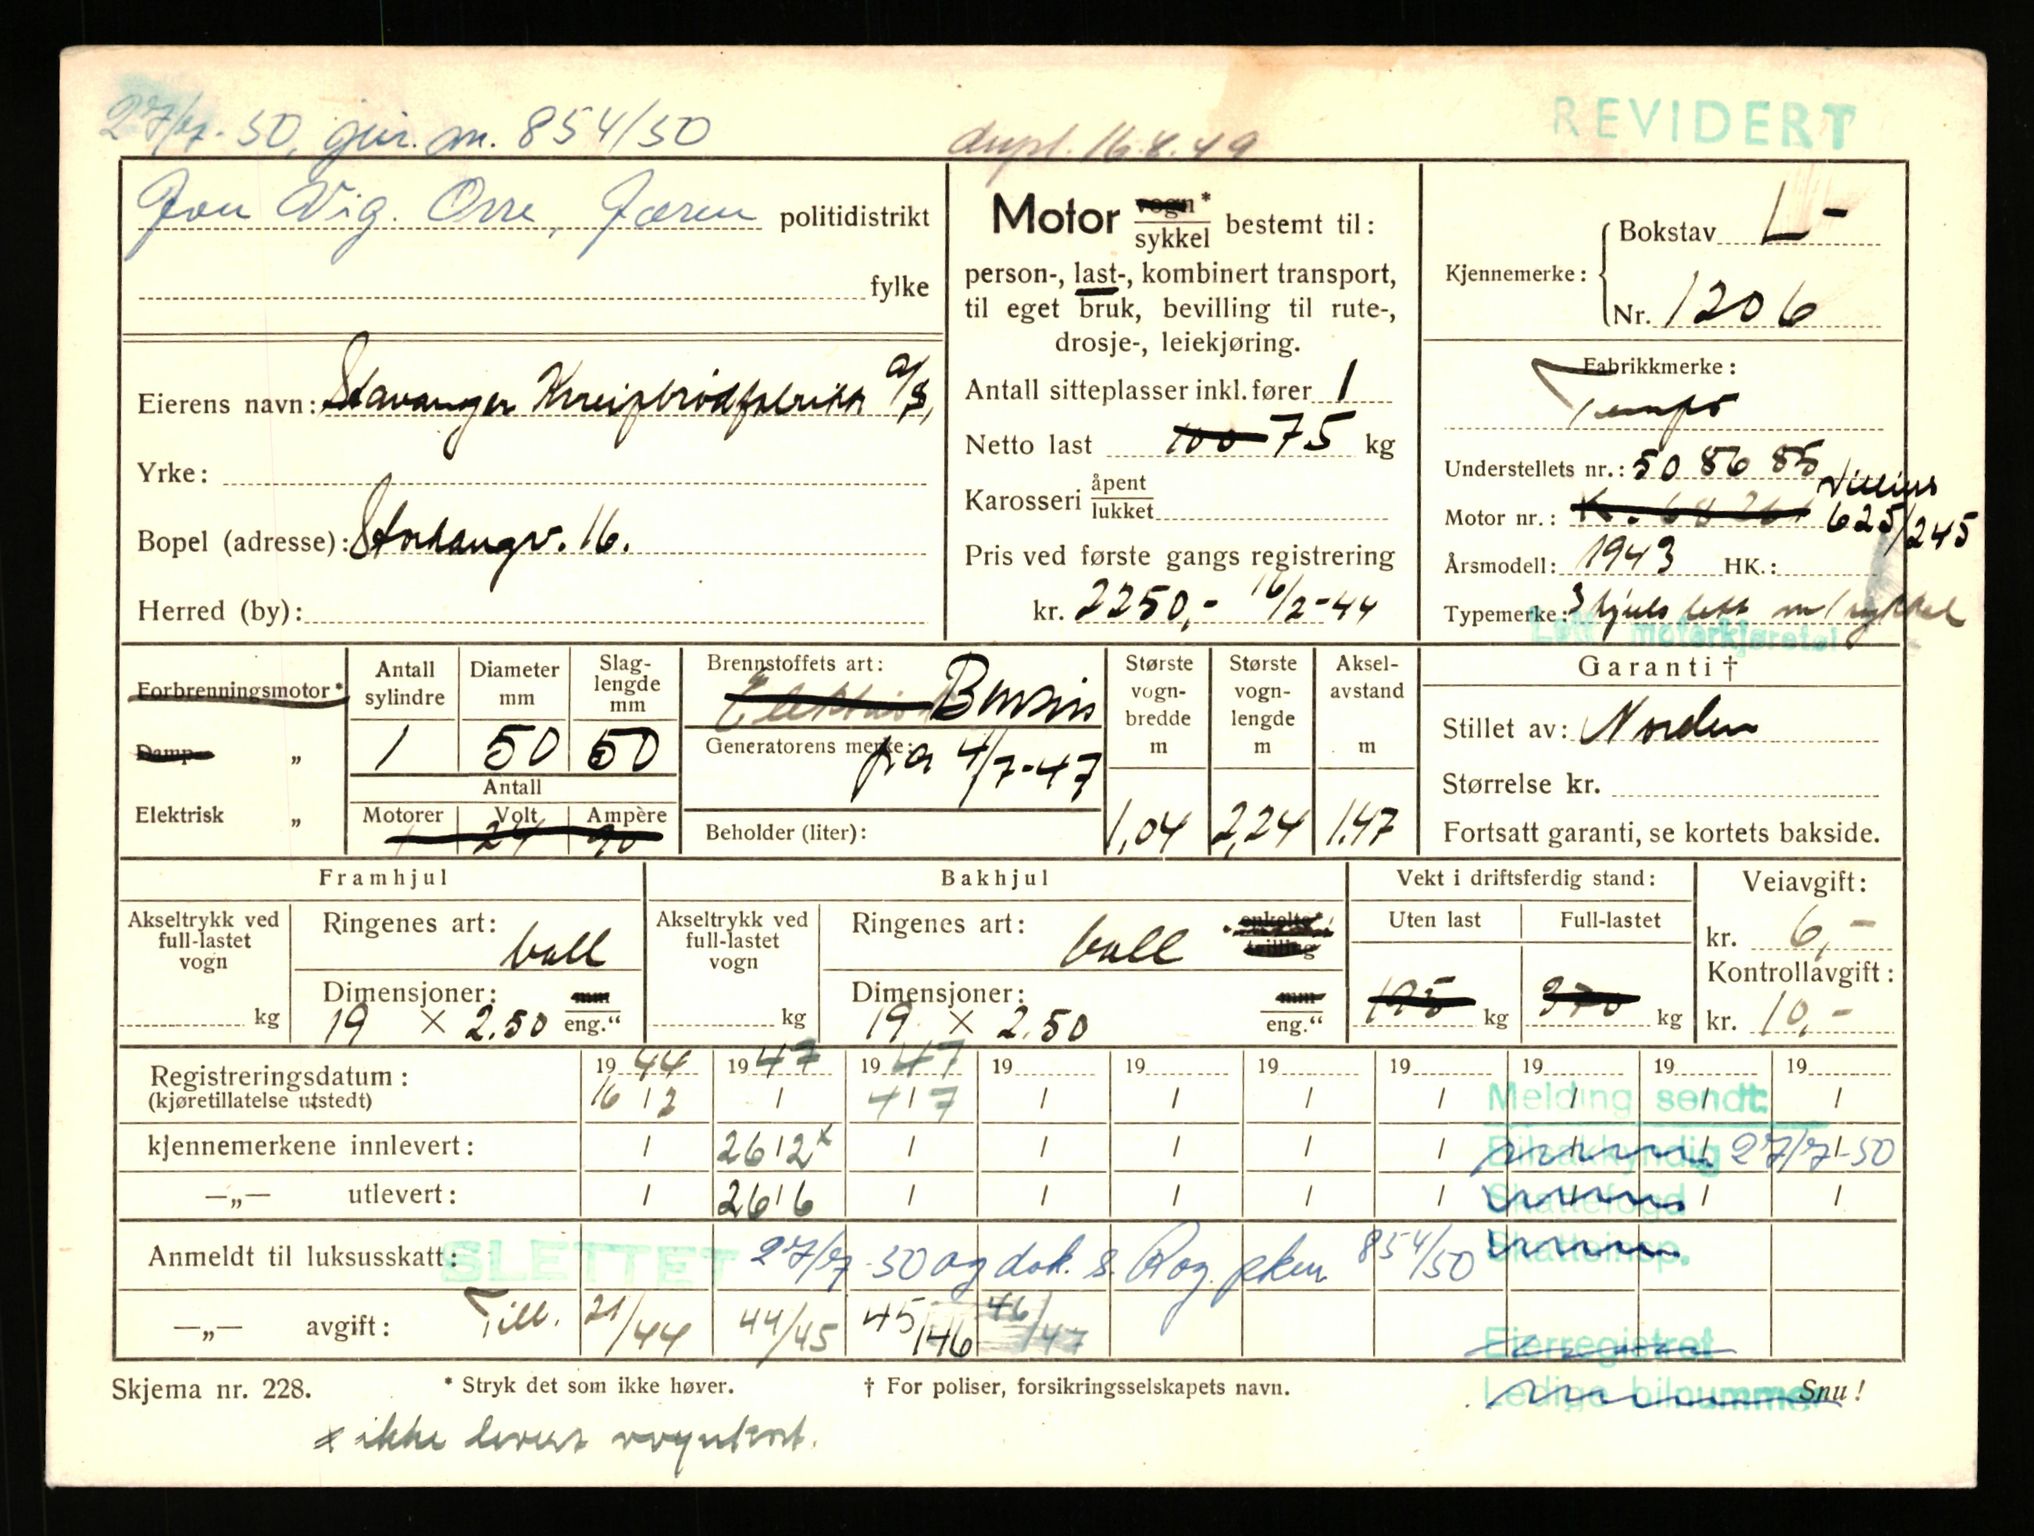 27/7-50, gjir. m. 854/50
dupl. 16.8.49
REVIDERT
Jon Vig. Orre, Jæren politidistrikt
fylke
Eierens navn: Stavanger Kneipbrødfabrikk A/S,
Yrke:
Bopel (adresse): Storhaugv. 16.
Herred (by):
Motor vogn* sykkel bestemt til:
person-, last-, kombinert transport,
til eget bruk, bevilling til rute-,
drosje-, leiekjøring.
Antall sitteplasser inkl. fører 1
Netto last 100 75 kg
Karosseri åpent lukket
Pris ved første gangs registrering
kr. 2250,- 16/2-44
Kjennemerke: Bokstav L-
Nr. 1206
Fabrikkmerke:
Tempo
Understellets nr.: 50 86 85
Motor nr.: Villiers 625/245
Årsmodell: 1943 HK.:
Typemerke: 3 hjuls lett m/sykkel
Lett motorkjøretøi
Forbrenningsmotor*
Damp „
Elektrisk „
Antall sylindre 1
Diameter mm 50
Slag-lengde mm 50
Antall
Motorer Volt 24 Ampère 90
Brennstoffets art: Elektrisk Bensin
Generatorens merke: fra 4/7-47
Beholder (liter):
Største vogn-bredde m 1,04
Største vogn-lengde m 2,24
Aksel-avstand m 1.47
Garanti †
Stillet av: Norden
Størrelse kr.
Fortsatt garanti, se kortets bakside.
Framhjul
Akseltrykk ved full-lastet vogn kg
Ringenes art: ball
Dimensjoner: mm
19 × 2.50 eng."
Bakhjul
Akseltrykk ved full-lastet vogn kg
Ringenes art: ball enkelte* tvilling
Dimensjoner: mm
19 × 2.50 eng."
Vekt i driftsferdig stand:
Uten last 195 kg
Full-lastet 370 kg
Veiavgift:
kr. 6,-
Kontrollavgift:
kr. 10,-
Registreringsdatum: 1944 1947 1947 19 19 19 19 19 19 19
(kjøretillatelse utstedt) 16/2 / 4/7 / / / / / / /
Melding sendt:
kjennemerkene innlevert: / 26/2 x / / / / / / / /
Bilsakkyndig 27/7-50
—„— utlevert: / 26/6 / / / / / / / /
Skattefogd
Anmeldt til luksusskatt: SLETTET 27/7-50 og dok. s. Rog. pkm 854/50
Skatteinsp.
—„— avgift: Till. 21/44 44/45 45/46 46/47
Eierregistret
Ledige bilnummer
Skjema nr. 228. * Stryk det som ikke høver. † For poliser, forsikringsselskapets navn. Snu!
x ikke levert vognkort.